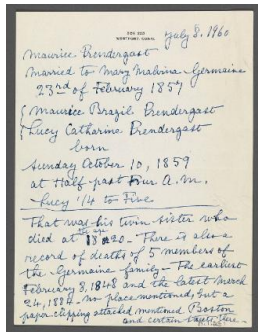 BOX 333
WESTPORT CONN.
July 8, 1960
Maurice Prendergast
Married to Mary Malvina Germaine
23rd of February 1857
Maurice Brazil Prendergast
Lucy Catharine Prendergast
born
Sunday October 10, 1859
at Half past Four A.M.
Lucy 1/4 to Five
That was his twin sister who
died at the age 18 or 20 - There is also a
record of deaths of 5 members of
the Germaine family - The earliest
February 8, 1848 and the latest March
24, 1884 - no place mentioned, but a
paper clipping attached mentioned Boston
and certain